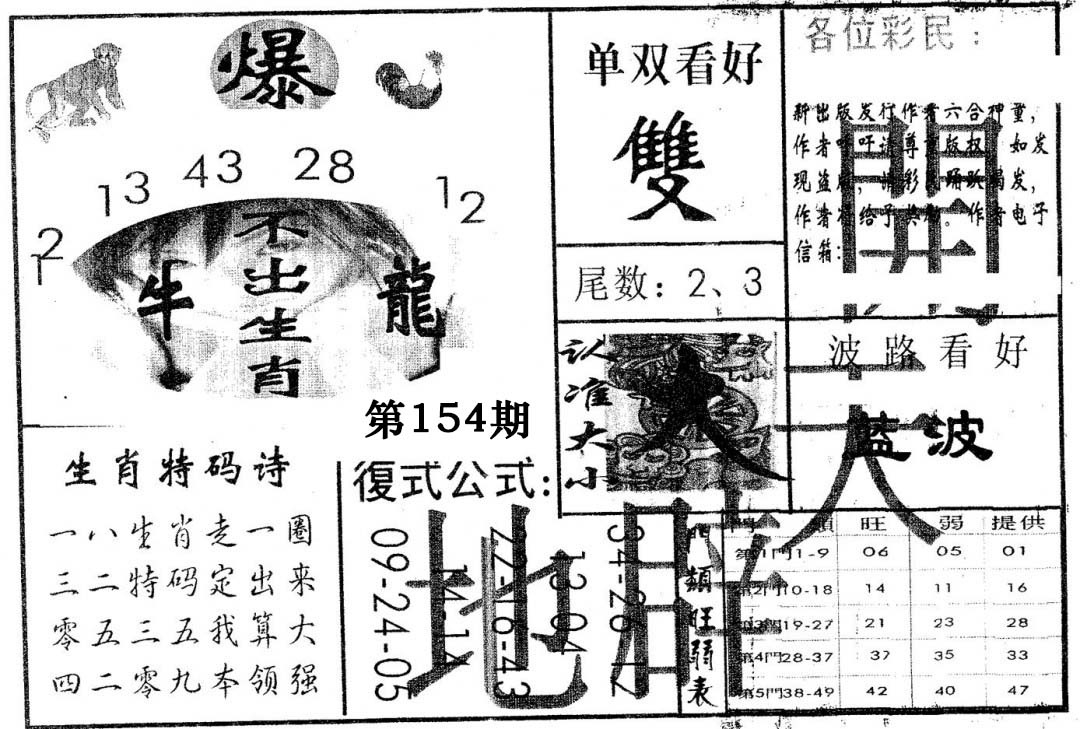 爆
13 43 28 12
12
不出生肖
牛 龍
第154期
生肖特码诗
一八生肖走一圈
三二特码定出来
零五三五我算大
四二零九本领强
復式公式:
09-24-05
14-14
22-16-43
13-04
34-26-12
单双看好
雙
尾数：2、3
认准大小
大
各位彩民：
新出版发行作者六合神童，
作者吁吁请尊重版权，如发
现盗版，请彩民踊跃揭发，
作者将给予奖励。作者电子
信箱：
開天地門
波路看好
蓝波
門類旺弱表
門類 旺 弱 提供
第1門1-9 06 05 01
第2門10-18 14 11 16
第3門19-27 21 23 28
第4門28-37 37 35 33
第5門38-49 42 40 47